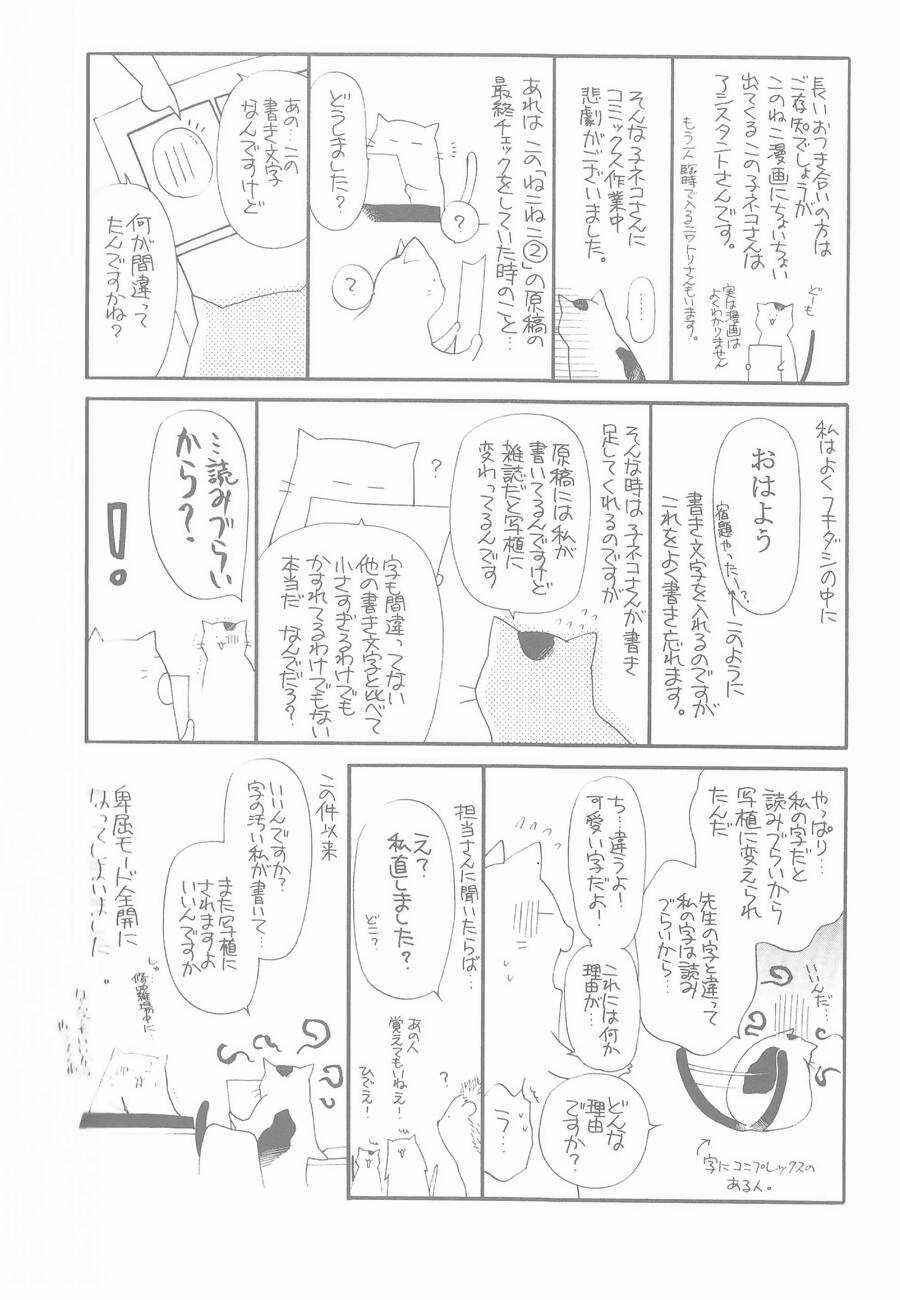 長いおつき合いの方は
ご存知でしょうが
このねこ漫画にちょいちょい
出てくるこの子ネコさんは
アシスタントさんです。
もう一人臨時で入るニワトリさんもいます。
どーも
実は漫画は
よくわかりません
そんな子ネコさんに
コミックス作業中
悲劇がございました。
………
あれはこの「ねこねこ②」の原稿の
最終チェックをしていた時のこと…
どうしました?
?
?
あの…この
書き文字
なんですけど
何が間違って
たんですかね?
私はよくフキダシの中に
おはよう
宿題やったー?
このように
書き文字を入れるのですが
これをよく書き忘れます。
そんな時は子ネコさんが書き
足してくれるのですが
原稿には私が
書いてるんですけど
雑誌だと写植に
変わってるんです
?
字も間違ってない
他の書き文字と比べて
小さすぎるわけでも
かすれてるわけでもない
本当だ なんでだろ?
…読みづらい
から?
!
やっぱり…
私の字だと
読みづらいから
写植に変えられ
たんだ
先生の字と違って
私の字は読み
づらいから…
いいんだ…
字にコンプレックスの
ある人。
ち…違うよ!
可愛い字だよ!
これには何か
理由が…
どんな
理由
ですか?
う…
担当さんに聞いたらば…
え?
私直しました?
どこ?
?
あの人
覚えてもいねえ!
ひでえ!
この件以来
いいんですか?
字の汚い私が書いて…
また写植に
されますよ
いいんですか
卑屈モード全開に
なってしまいました。
しゅ…
修羅場中に